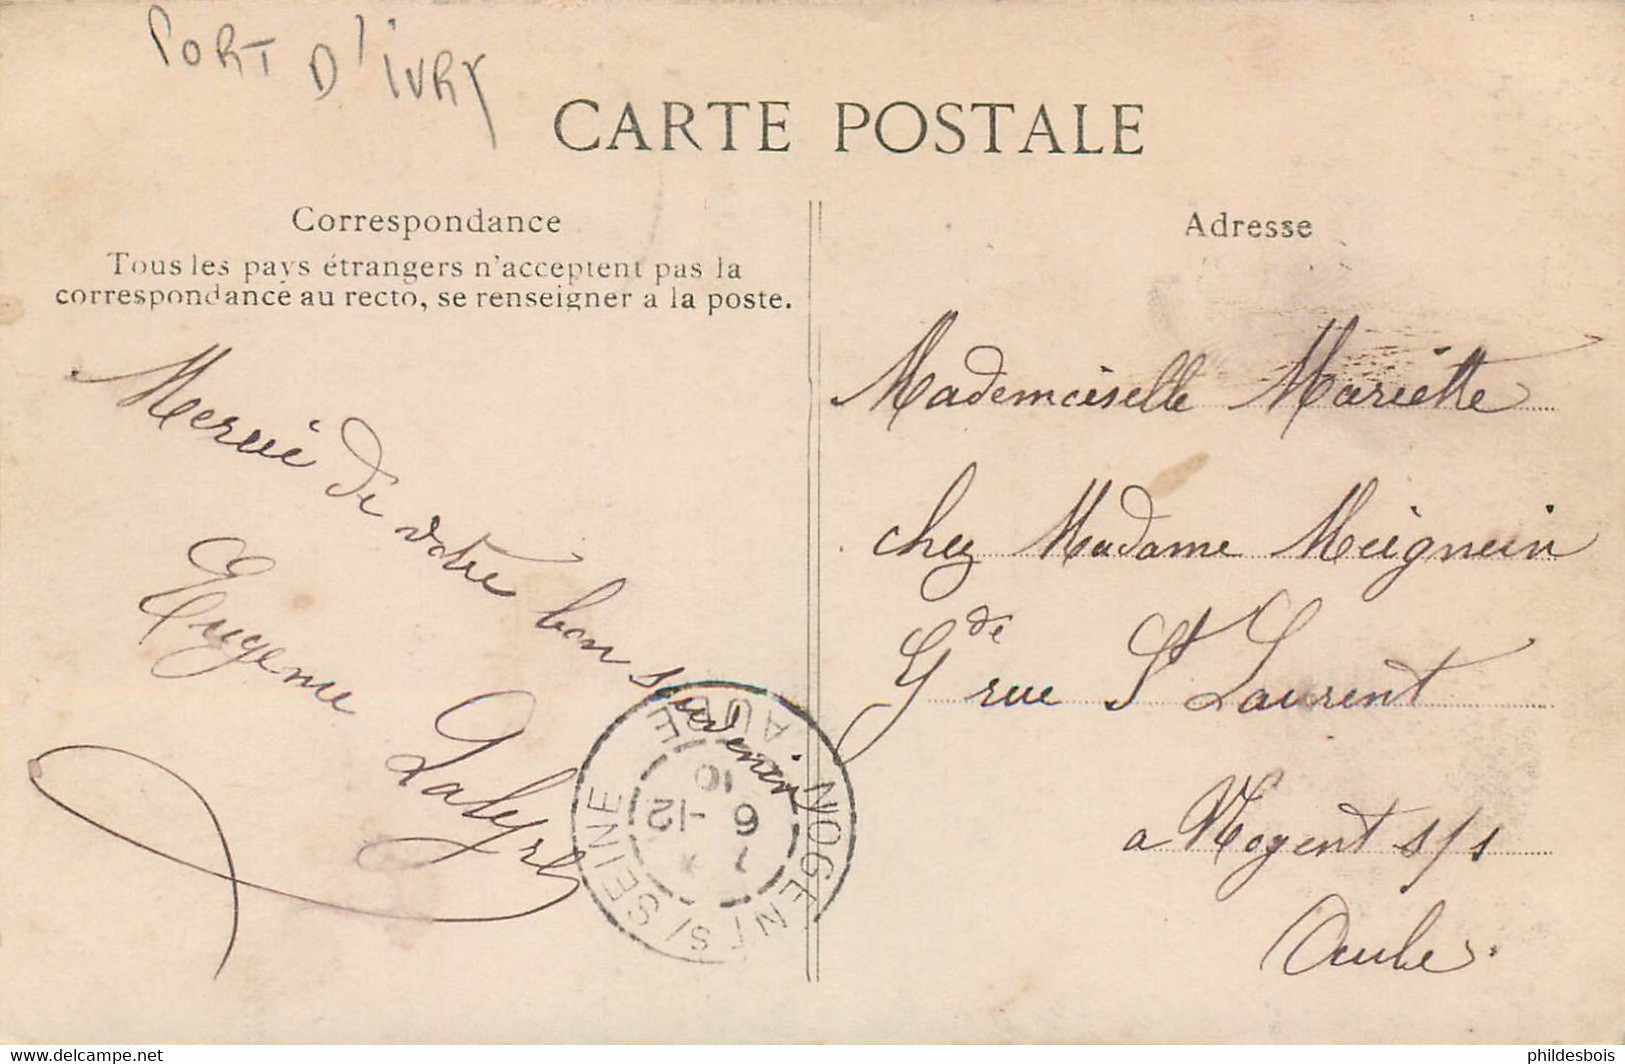 PORT D'IVRY
CARTE POSTALE
Correspondance
Tous les pays étrangers n'acceptent pas la
correspondance au recto, se renseigner a la poste.
Mercie de votre bon souvenir
Eugenie
Adresse
Mademoiselle Mariette
chez Madame Meignein
Gde rue St Laurent
a Nogent s/s
Aube.
NOGENT S/SEINE
AUBE
6 -12
10
www.delcampe.net
phildesbois